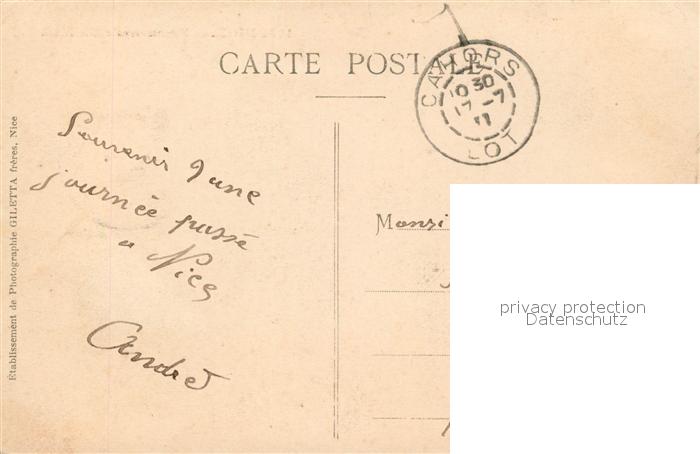 CARTE POSTALE
CAHORS
10 30
17 - 7
11
LOT
Souvenir d'une
journée passé
a Nice
André
Monsi
privacy protection
Datenschutz
Établissement de Photographie GILETTA frères, Nice